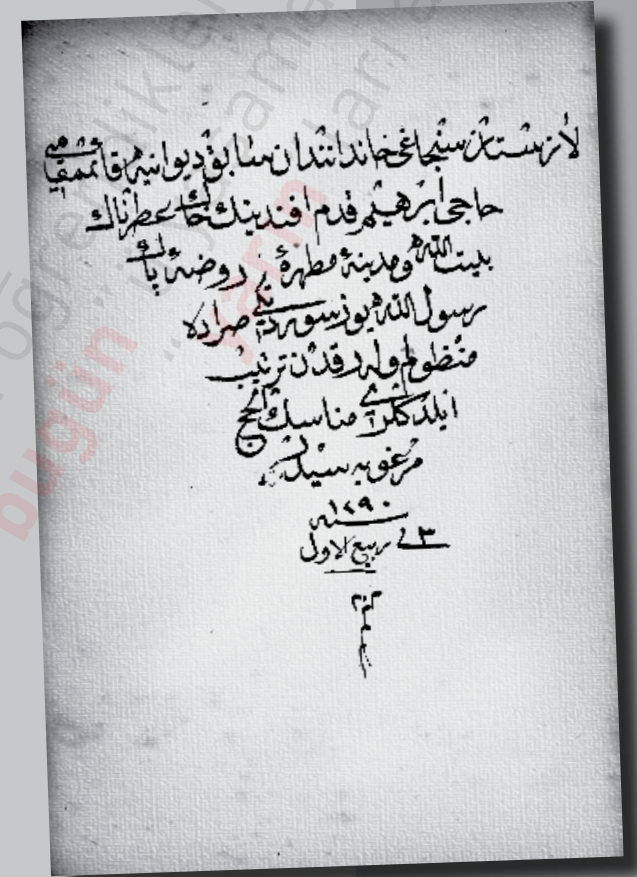 لازستان سنجاغى خاندانندان سابق ديوانيه قائممقامى
حاجى ابرهيم قدم افندينك خاك عطرناك
بيت الله و مدينهٔ مطهرهٔ روضهٔ پاك
رسول الله يوز سورديكى صراده
منظوم اوله رق ترتيب
ايلدكلرى مناسك الحج
مرغوبه سيدر
سنه ١٢٩٠
فى ٣ ربيع الاول
م
bugün
yarın
öğrendikler